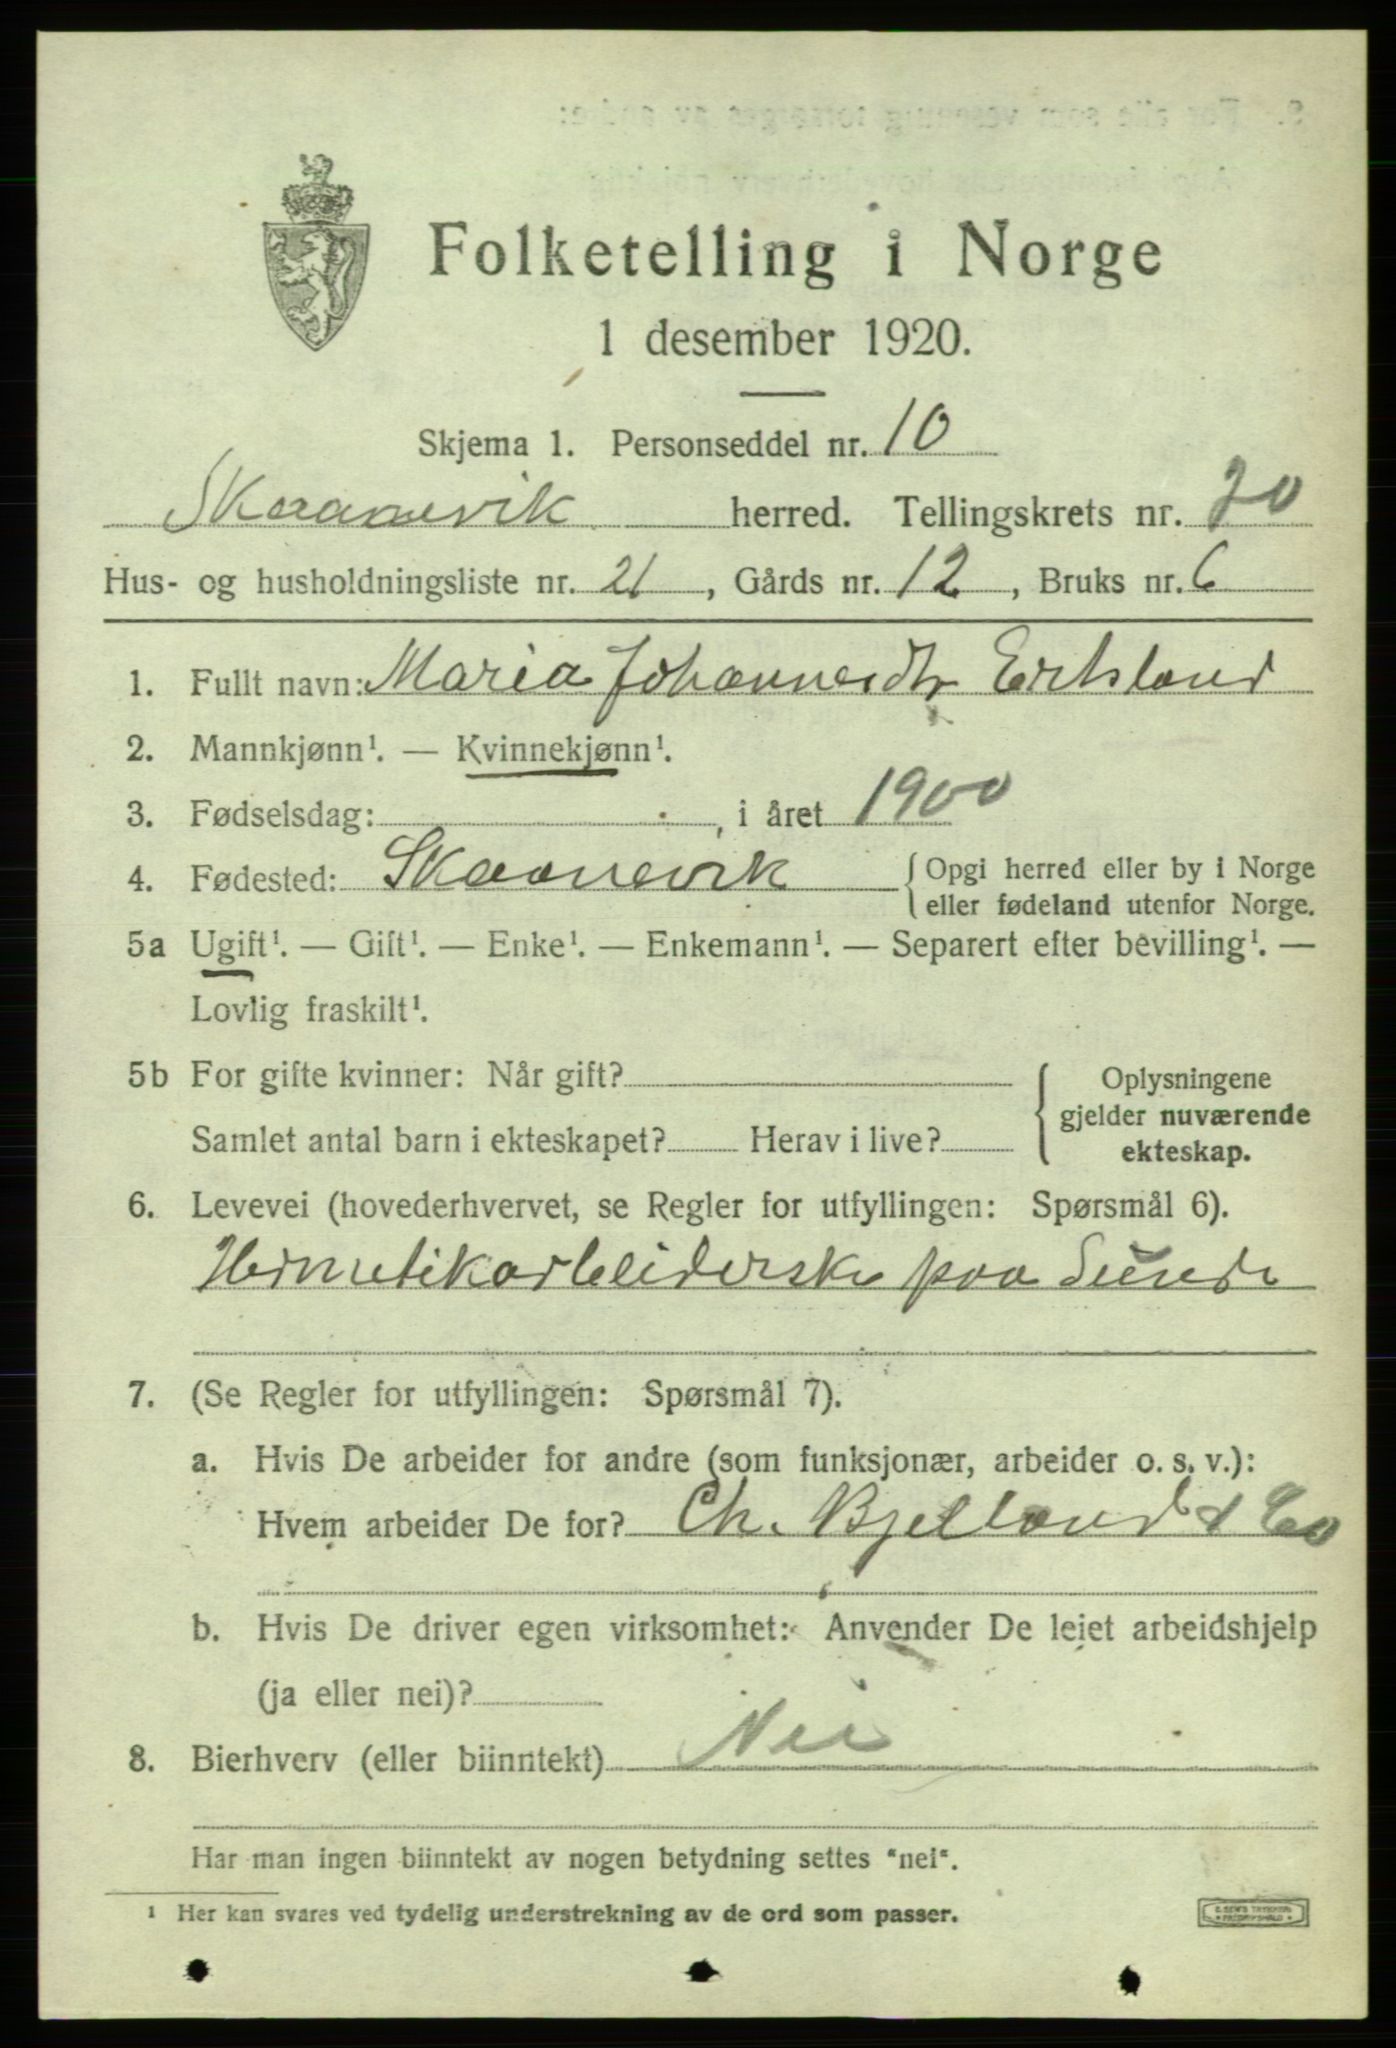 Folketelling i Norge
1 desember 1920.
Skjema 1. Personseddel nr. 10
Skaanevik herred. Tellingskrets nr. 20
Hus- og husholdningsliste nr. 21, Gårds nr. 12, Bruks nr. 6
1. Fullt navn: Maria Johannesdtr
2. Mannkjønn¹. — Kvinnekjønn¹.
3. Fødselsdag: , i året 1900
4. Fødested: Skaanevik { Opgi herred eller by i Norge
eller fødeland utenfor Norge.
5a Ugift¹. — Gift¹. — Enke¹. — Enkemann¹. — Separert efter bevilling¹. —
Lovlig fraskilt¹.
5b For gifte kvinner: Når gift? { Oplysningene
gjelder nuværende
Samlet antal barn i ekteskapet? Herav i live? ekteskap.
6. Levevei (hovederhvervet, se Regler for utfyllingen: Spørsmål 6).
Hermetikarbeiderske paa Sunde
7. (Se Regler for utfyllingen: Spørsmål 7).
a. Hvis De arbeider for andre (som funksjonær, arbeider o. s. v.):
Hvem arbeider De for? Ch. Bjelland & Co
b. Hvis De driver egen virksomhet: Anvender De leiet arbeidshjelp
(ja eller nei)?
8. Bierhverv (eller biinntekt) Nei
Har man ingen biinntekt av nogen betydning settes "nei".
¹ Her kan svares ved tydelig understrekning av de ord som passer.